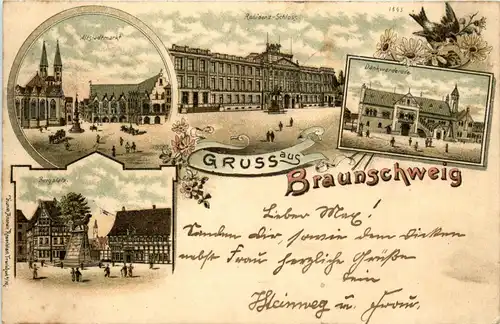 Altstadtmarkt
Residenz-Schloss.
1661
Dankwarderode.
GRUSS aus
Braunschweig
Burgplatz.
Lieber Max!
Senden Dir, sowie dem Dicken
nebst Frau herzliche Grüße
Dein
Steinweg u. Frau.